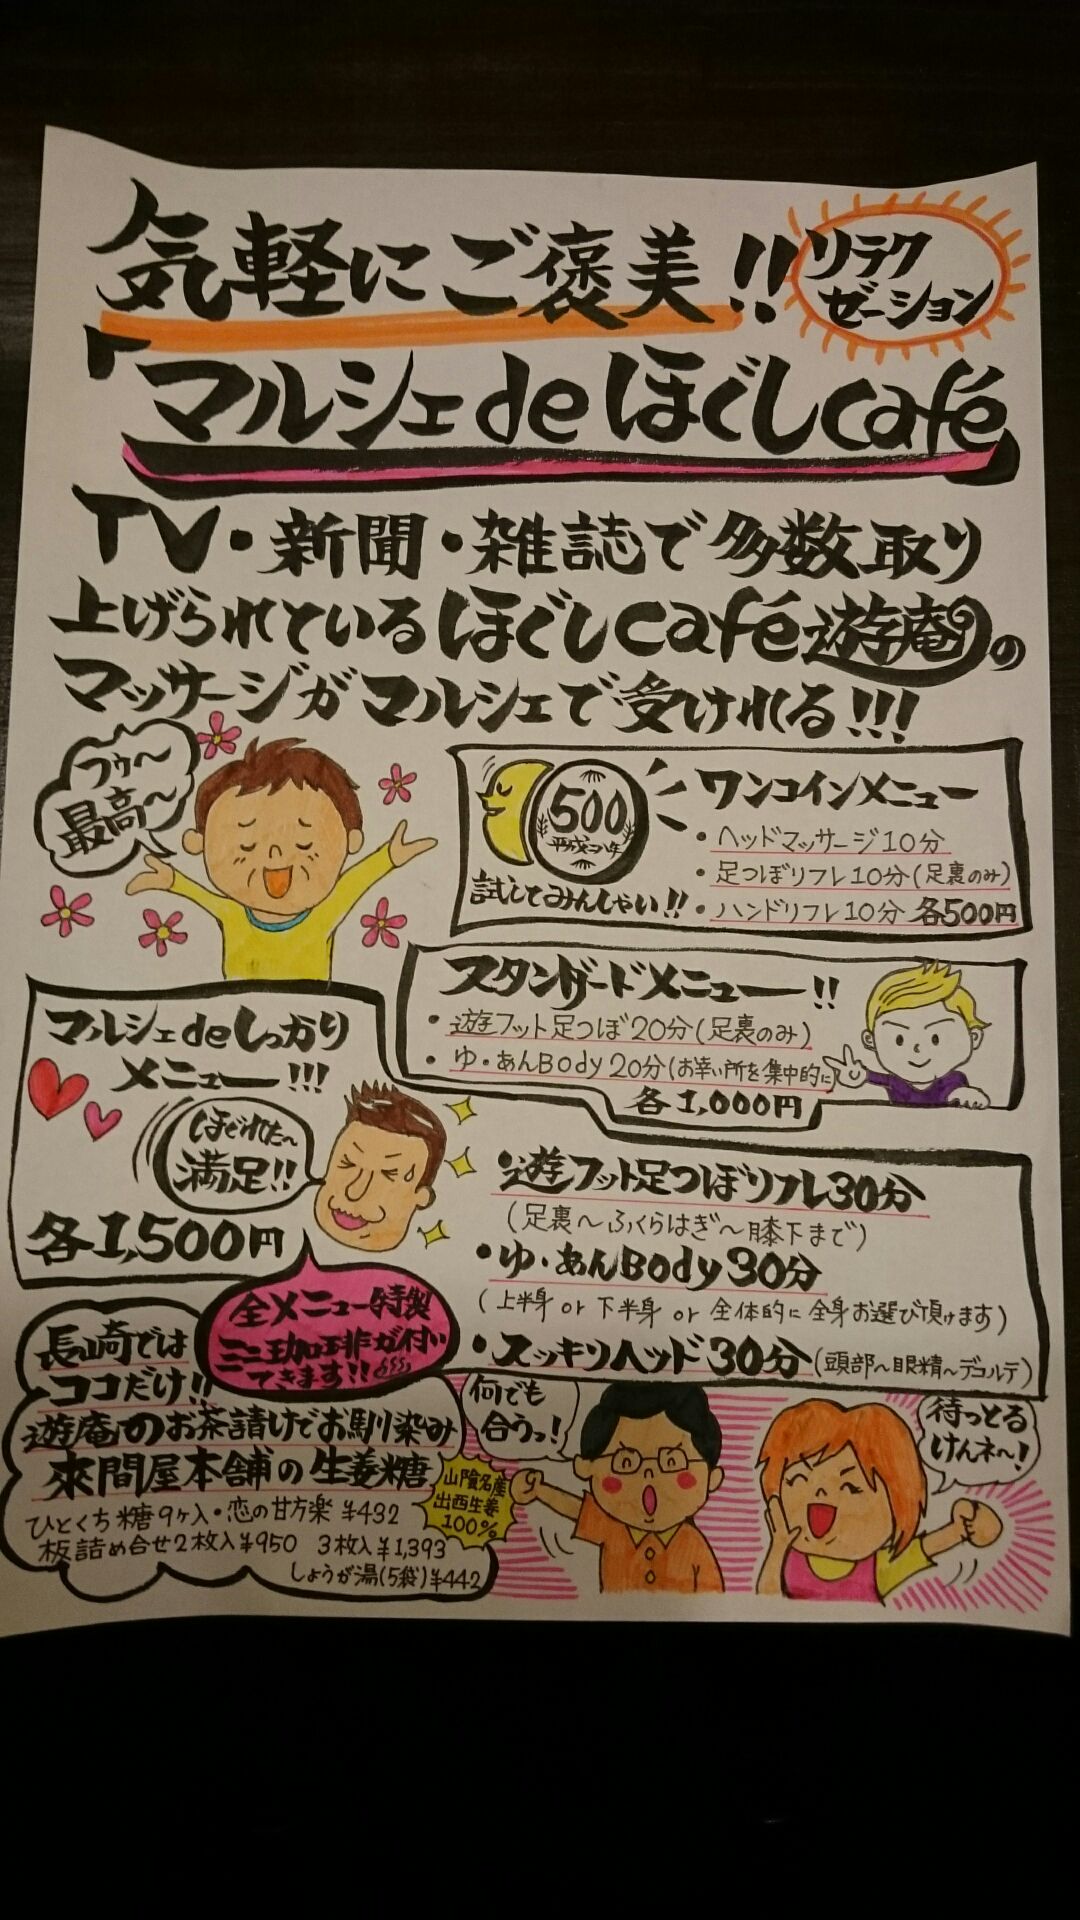 気軽にご褒美!!
リラク
ゼーション
「マルシェdeほぐしcafé」
TV・新聞・雑誌で多数取り
上げられているほぐしcafé遊庵の
マッサージがマルシェで受けれる!!!
フゥ〜
最高〜
500
平成二八年
試してみんしゃい!!
ワンコインメニュー
・ヘッドマッサージ10分
・足つぼリフレ10分(足裏のみ)
・ハンドリフレ10分 各500円
スタンダードメニュー!!
・遊フット足つぼ20分(足裏のみ)
・ゆ・あんBody 20分(お辛い所を集中的に)
各1,000円
マルシェdeしっかり
メニュー!!!
ほぐれた〜
満足!!
各1,500円
・遊フット足つぼリフレ30分
(足裏〜ふくらはぎ〜膝下まで)
・ゆ・あんBody 30分
(上半身or下半身or全体的に全身お選び頂けます)
・スッキリヘッド30分(頭部〜眼精〜デコルテ)
全メニュー特製
ミニ珈琲が付い
てきます!!
長崎では
ココだけ!!
遊庵のお茶請けでお馴染み
來間屋本舗の生姜糖
ひとくち糖9ヶ入・恋の甘方楽 ¥432
板詰め合せ2枚入¥950 3枚入¥1,393
しょうが湯(5袋)¥442
山陰名産
出西生姜
100%
何でも
合うっ!
待っとる
けんネ〜!